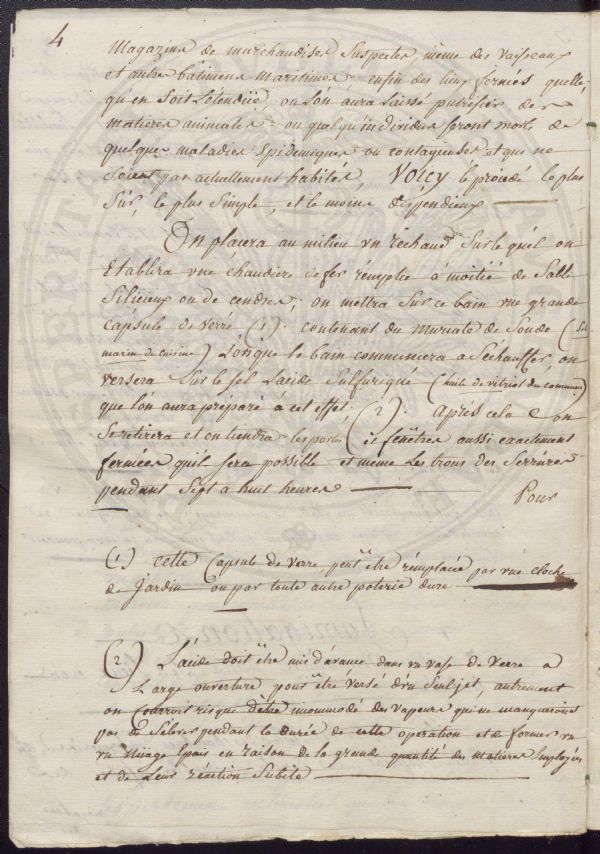 4
Magazins de marchandises Suspectes, même des Vaisseaux
et autres bâtimens maritimes = enfin des lieux fermés quelle,
qu'en Soit l'étendüe, ou l'on aura laissé putrifier des
matieres animales = ou quelqu'individus seront morts de
quelque maladies Epidemiques ou contagieuses et qui ne
soient pas actuellement habités, Voicy le procédé le plus
Sûr, le plus Simple, et le moins dispendieux
On placera au milieu un réchaud Sur le quél on
Etablira une chaudiere de fer rémplie à moitié de Sable
Siliceux ou de cendres; on mettra Sur ce bain une grande
capsule de verre (1). contenant du muriate de Soude (Sel
marin de cuisine) Lorsque le bain commencera a Séchauffer, on
versera Sur le sel L'acide Sulfurique (huile de vitriol du commerce)
que l'on aura préparé à cet effet; (2). Aprés cela on
Se retirera et on tiendra les portes et fenêtres aussi exactement
fermées qu'il sera possible et même Les trous des Serrures
pendant Sept a huit heures
Pour
(1) cette Capsule de verre, peut être rémplacée par une cloche
de Jardin ou par toute autre poterie dure
(2) L'acide doit être mis d'avance dans un vase de verre a
Large ouverture pour être versé d'un Seul jet, autrement
on Courroit risque d'être incommodé des vapeurs qui ne manqueroient
pas de S'élever pendant la durée de cette operation et de former un
un Nuage Epais en raison de la grande quantité des matieres Employées
et de Leur réaction Subite